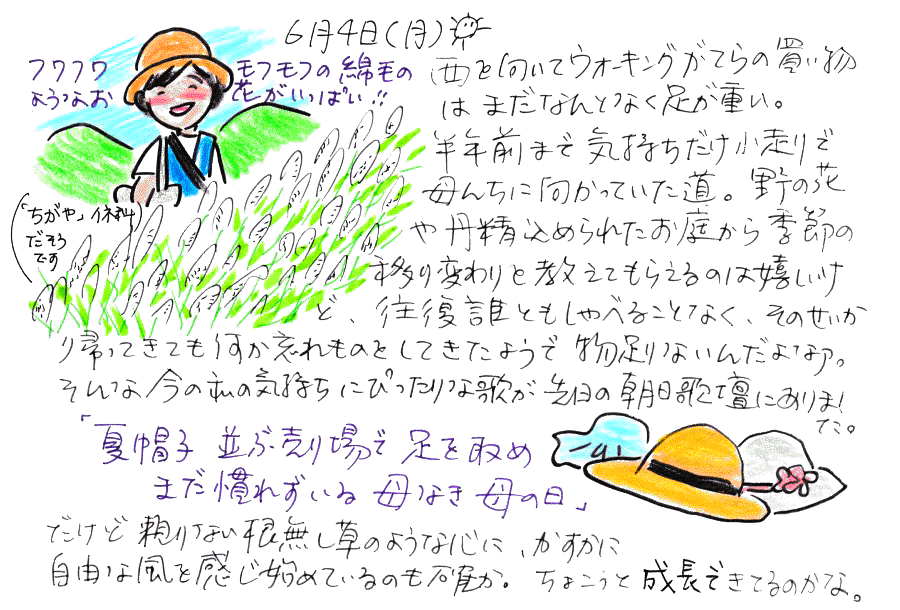 6月4日(月)
フワフワ
ようつなお
モフモフの綿毛の
花がいっぱい!!
「ちがや」イネ科
だそう
です
西を向いてウォーキングがてらの買い物
はまだなんとなく足が重い。
半年前まで気持ちだけ小走りで
母んちに向かっていた道。野の花
や丹精込められたお庭から季節の
移り変わりを教えてもらえるのは嬉しいけ
ど、往復誰ともしゃべることなく、そのせいか
帰ってきても何か忘れものをしてきたようで物足りないんだよなァ。
そんな今の私の気持ちにぴったりな歌が先日の朝日歌壇にありまし
た。
「夏帽子 並ぶ売り場で 足を取め
まだ慣れずいる 母なき母の日」
だけど頼りない根無し草のような心に、かすかに
自由な風を感じ始めているのも確か。ちょこっと成長できてるのかな。